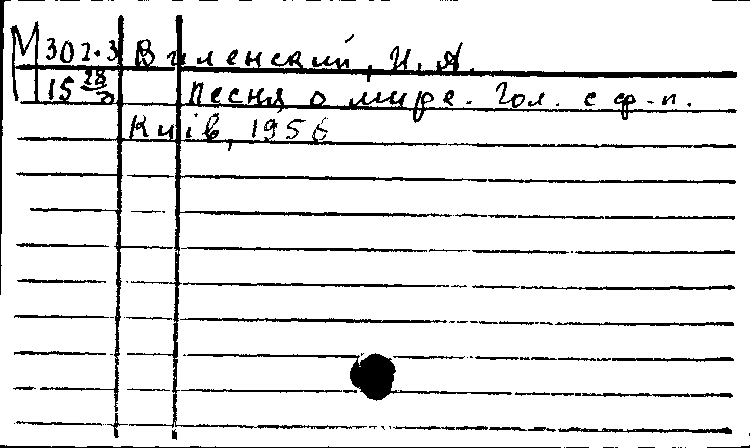 М 302.3 Виленский, И. А.
15 28/3 Песня о мире. Гол. с ф-п.
Київ, 1956